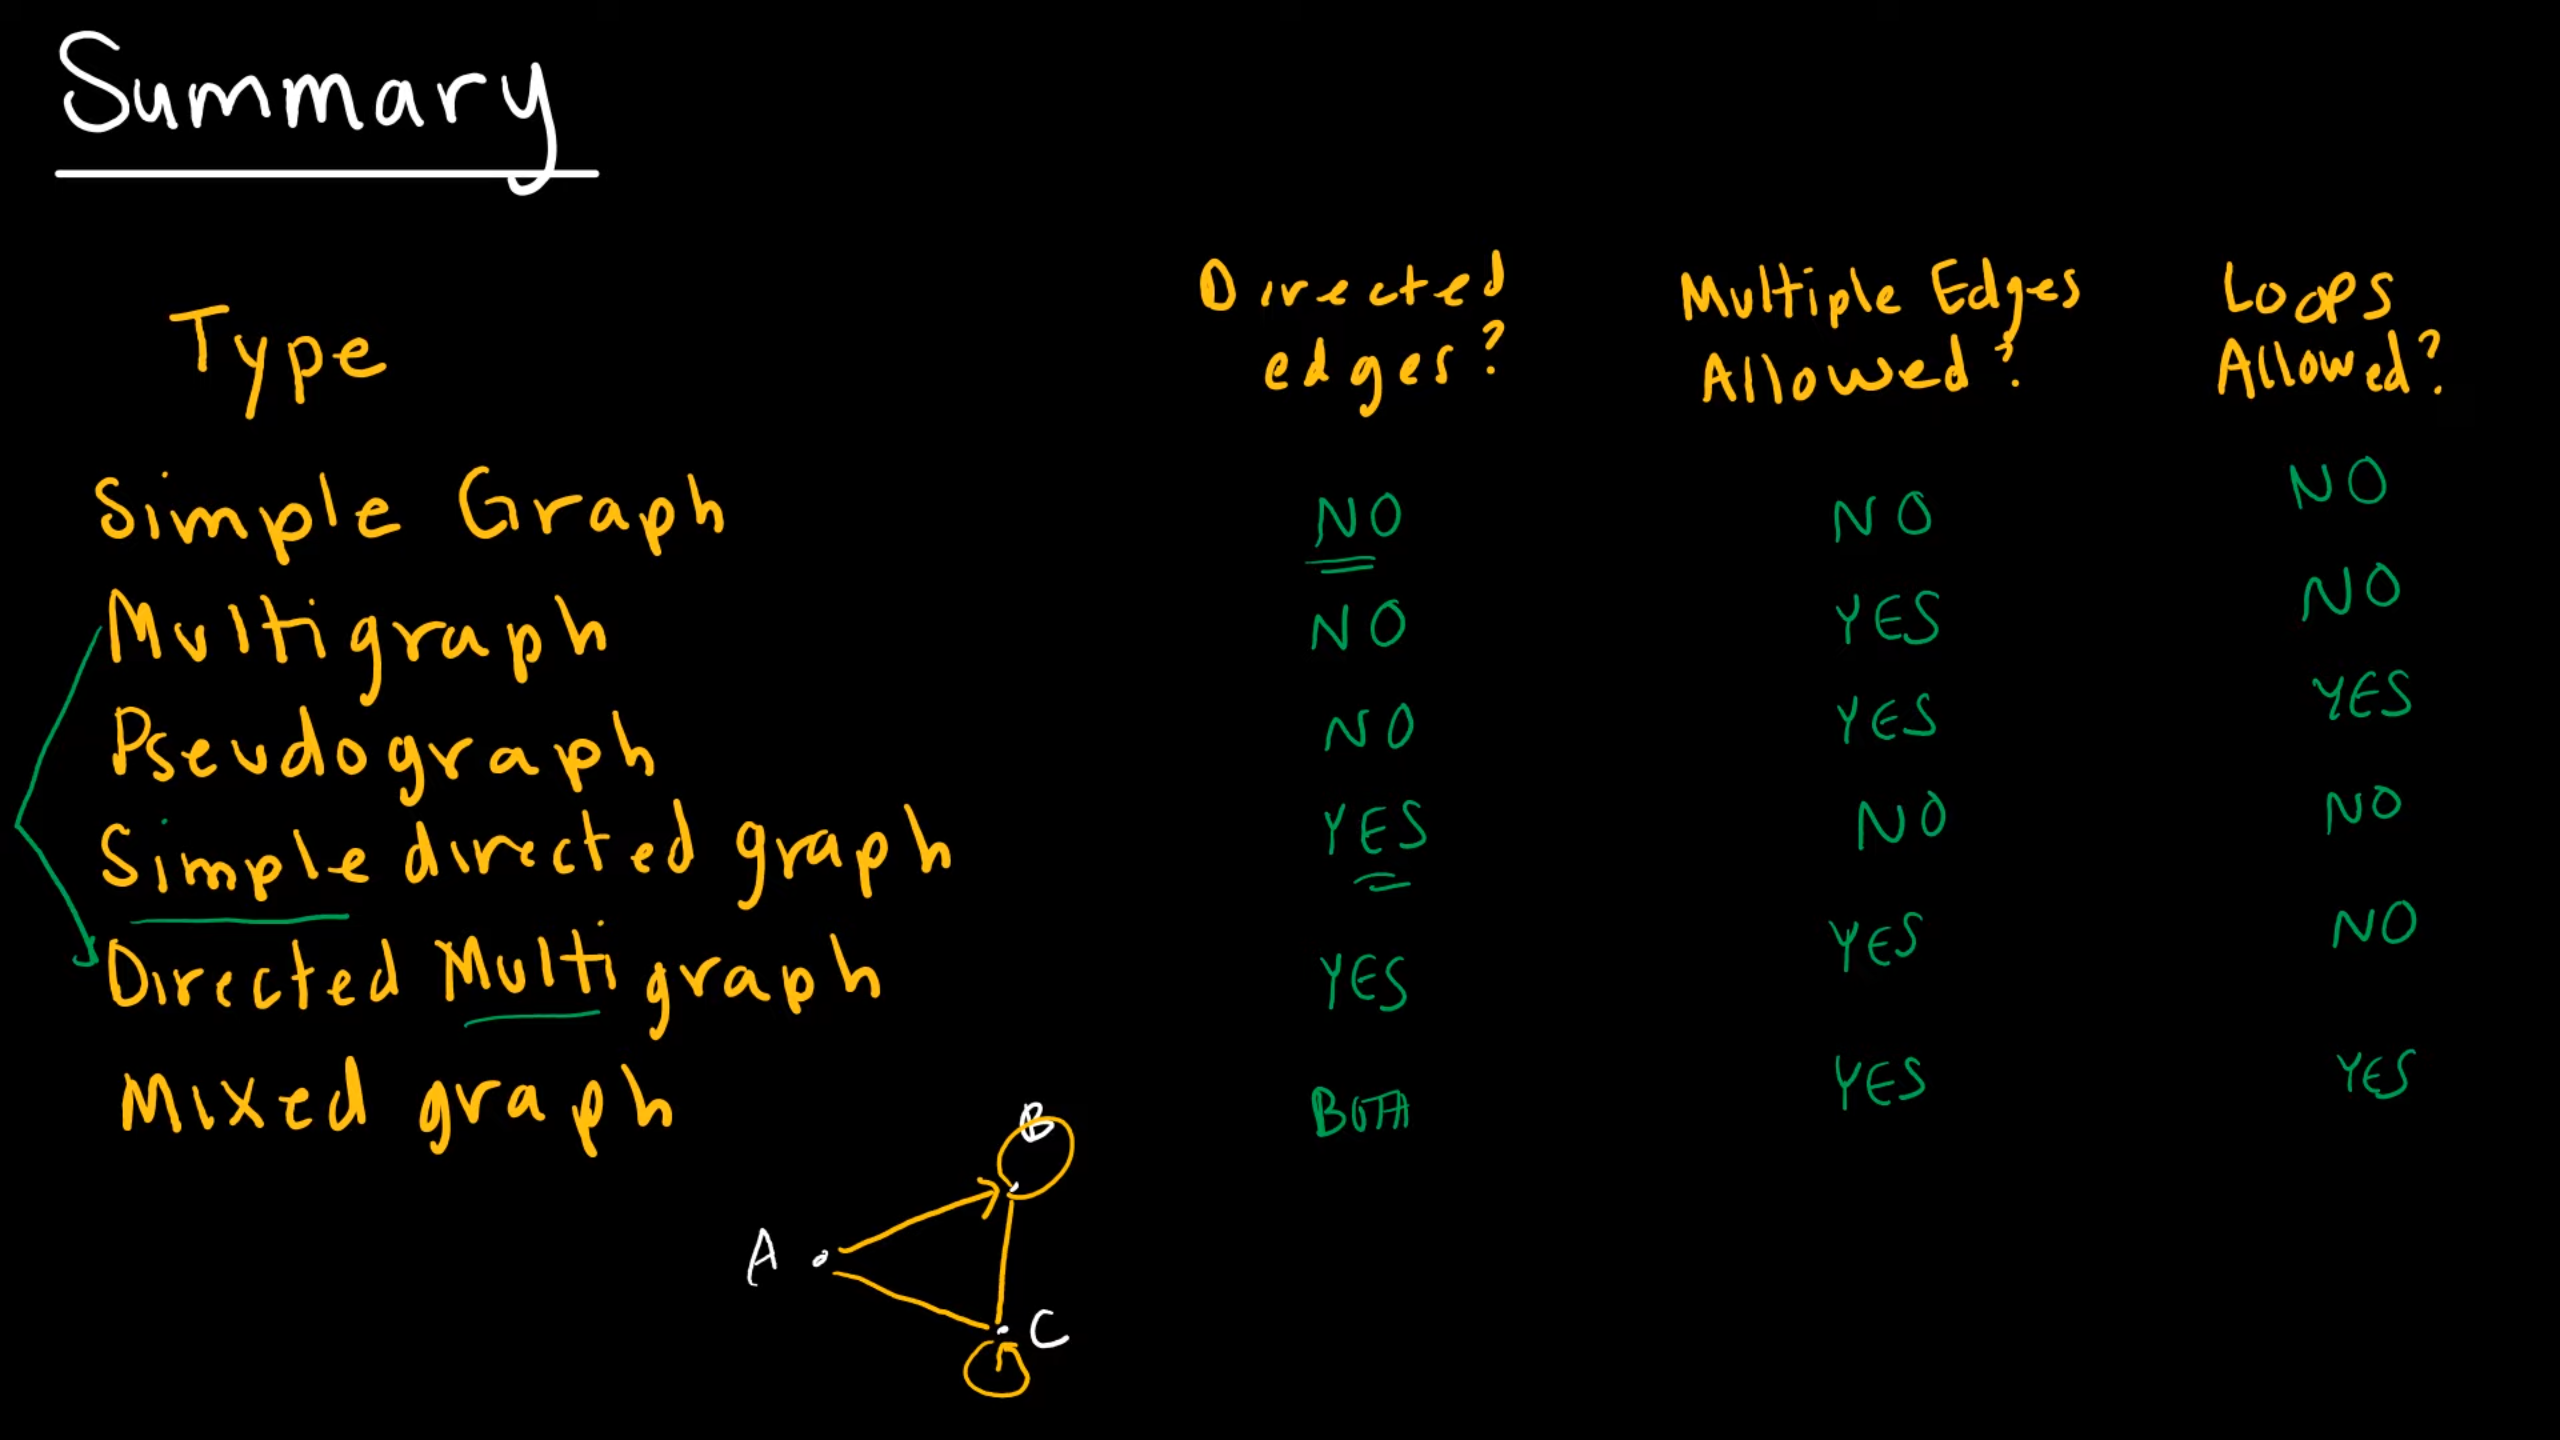 Summary
Type Directed edges? Multiple Edges Allowed? Loops Allowed?
Simple Graph NO NO NO
Multigraph NO YES NO
Pseudograph NO YES YES
Simple directed graph YES NO NO
Directed Multigraph YES YES NO
Mixed graph BOTH YES YES
B
A
C